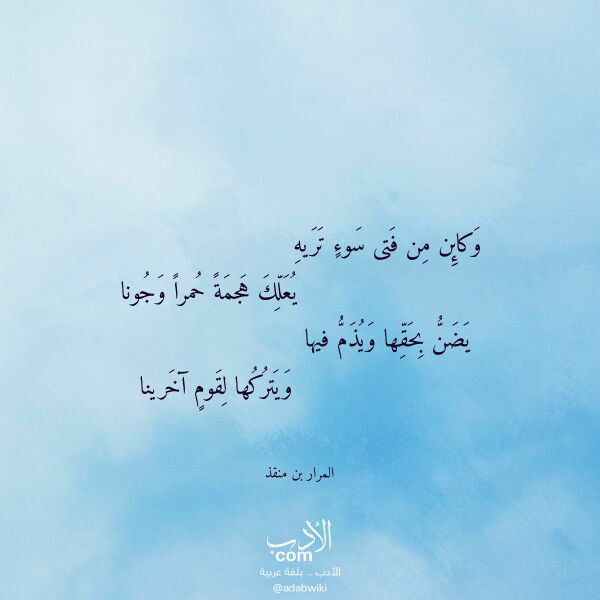 وَكائِن مِن فَتى سَوءٍ تَرَيهِ
يُعَلِّكَ هَجمَةً حُمراً وَجُونا
يَضَنُّ بِحَقِّها وَيُذَمُّ فيها
وَيَترُكُها لِقَومٍ آخَرينا
المرار بن منقذ
الأدب
com
الأدب .. بلغة عربية
@adabwiki